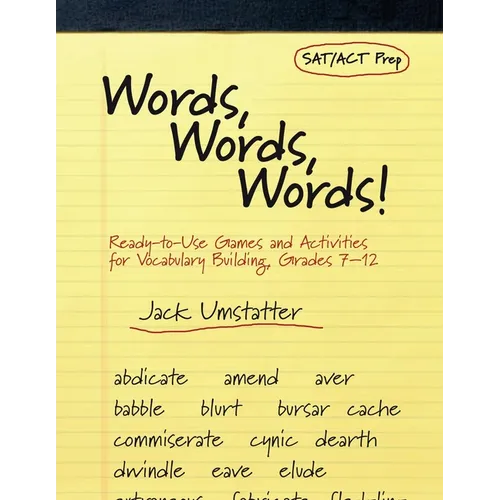 SAT/ACT Prep
Words,
Words,
Words!
Ready-to-Use Games and Activities
for Vocabulary Building, Grades 7–12
Jack Umstatter
abdicate amend aver
babble blurt bursar cache
commiserate cynic dearth
dwindle eave elude